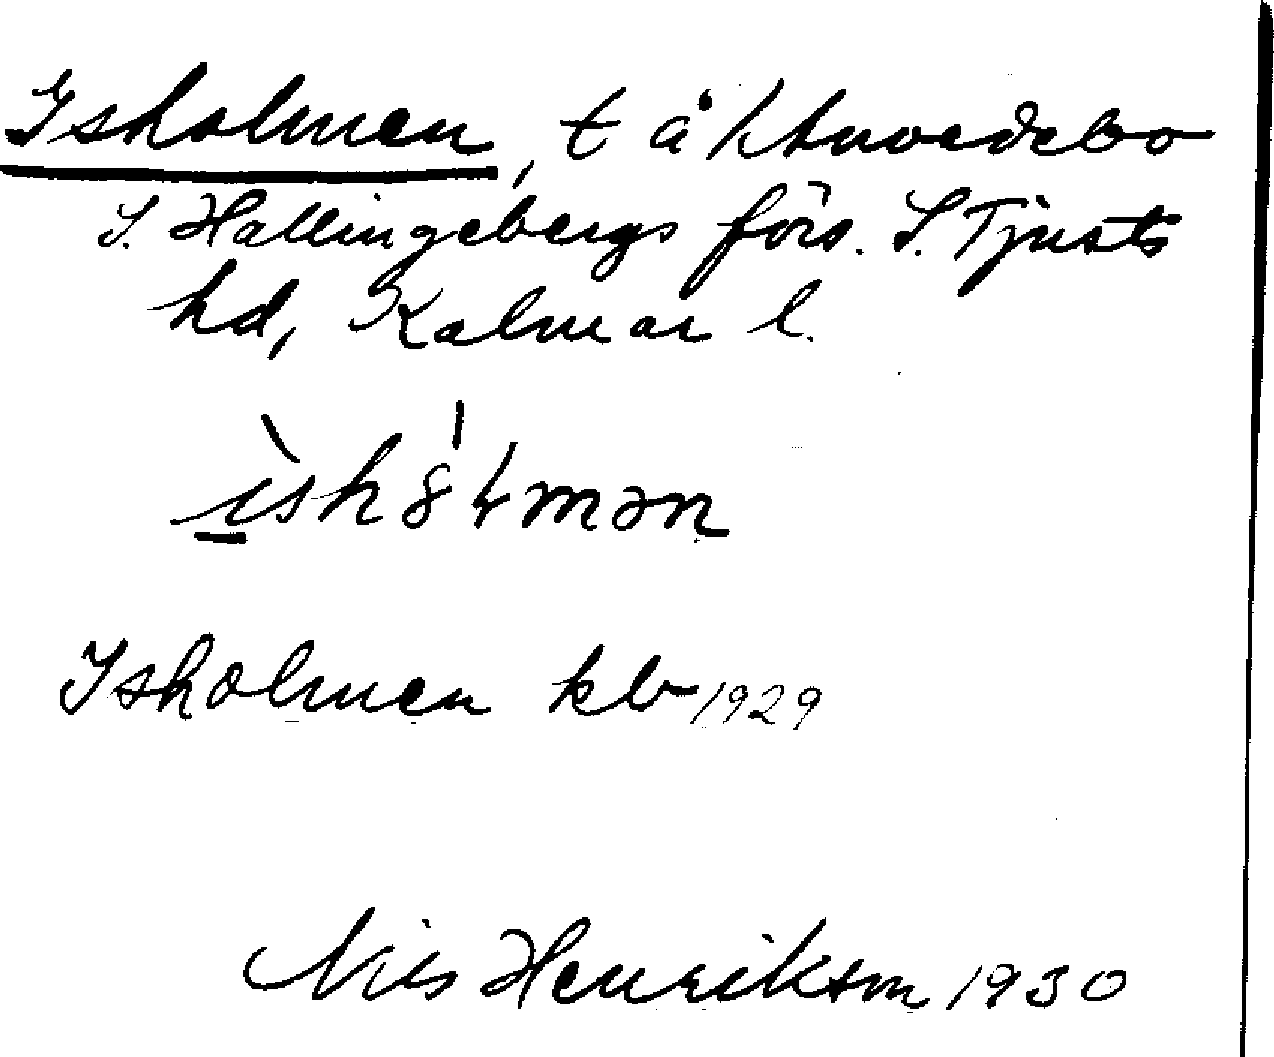 Isholmen, t å
S. Hallingebergs förs. S. Tjusts
hd, Kalmar l.
Isholmen kb 1929
Nils Henrikson 1930